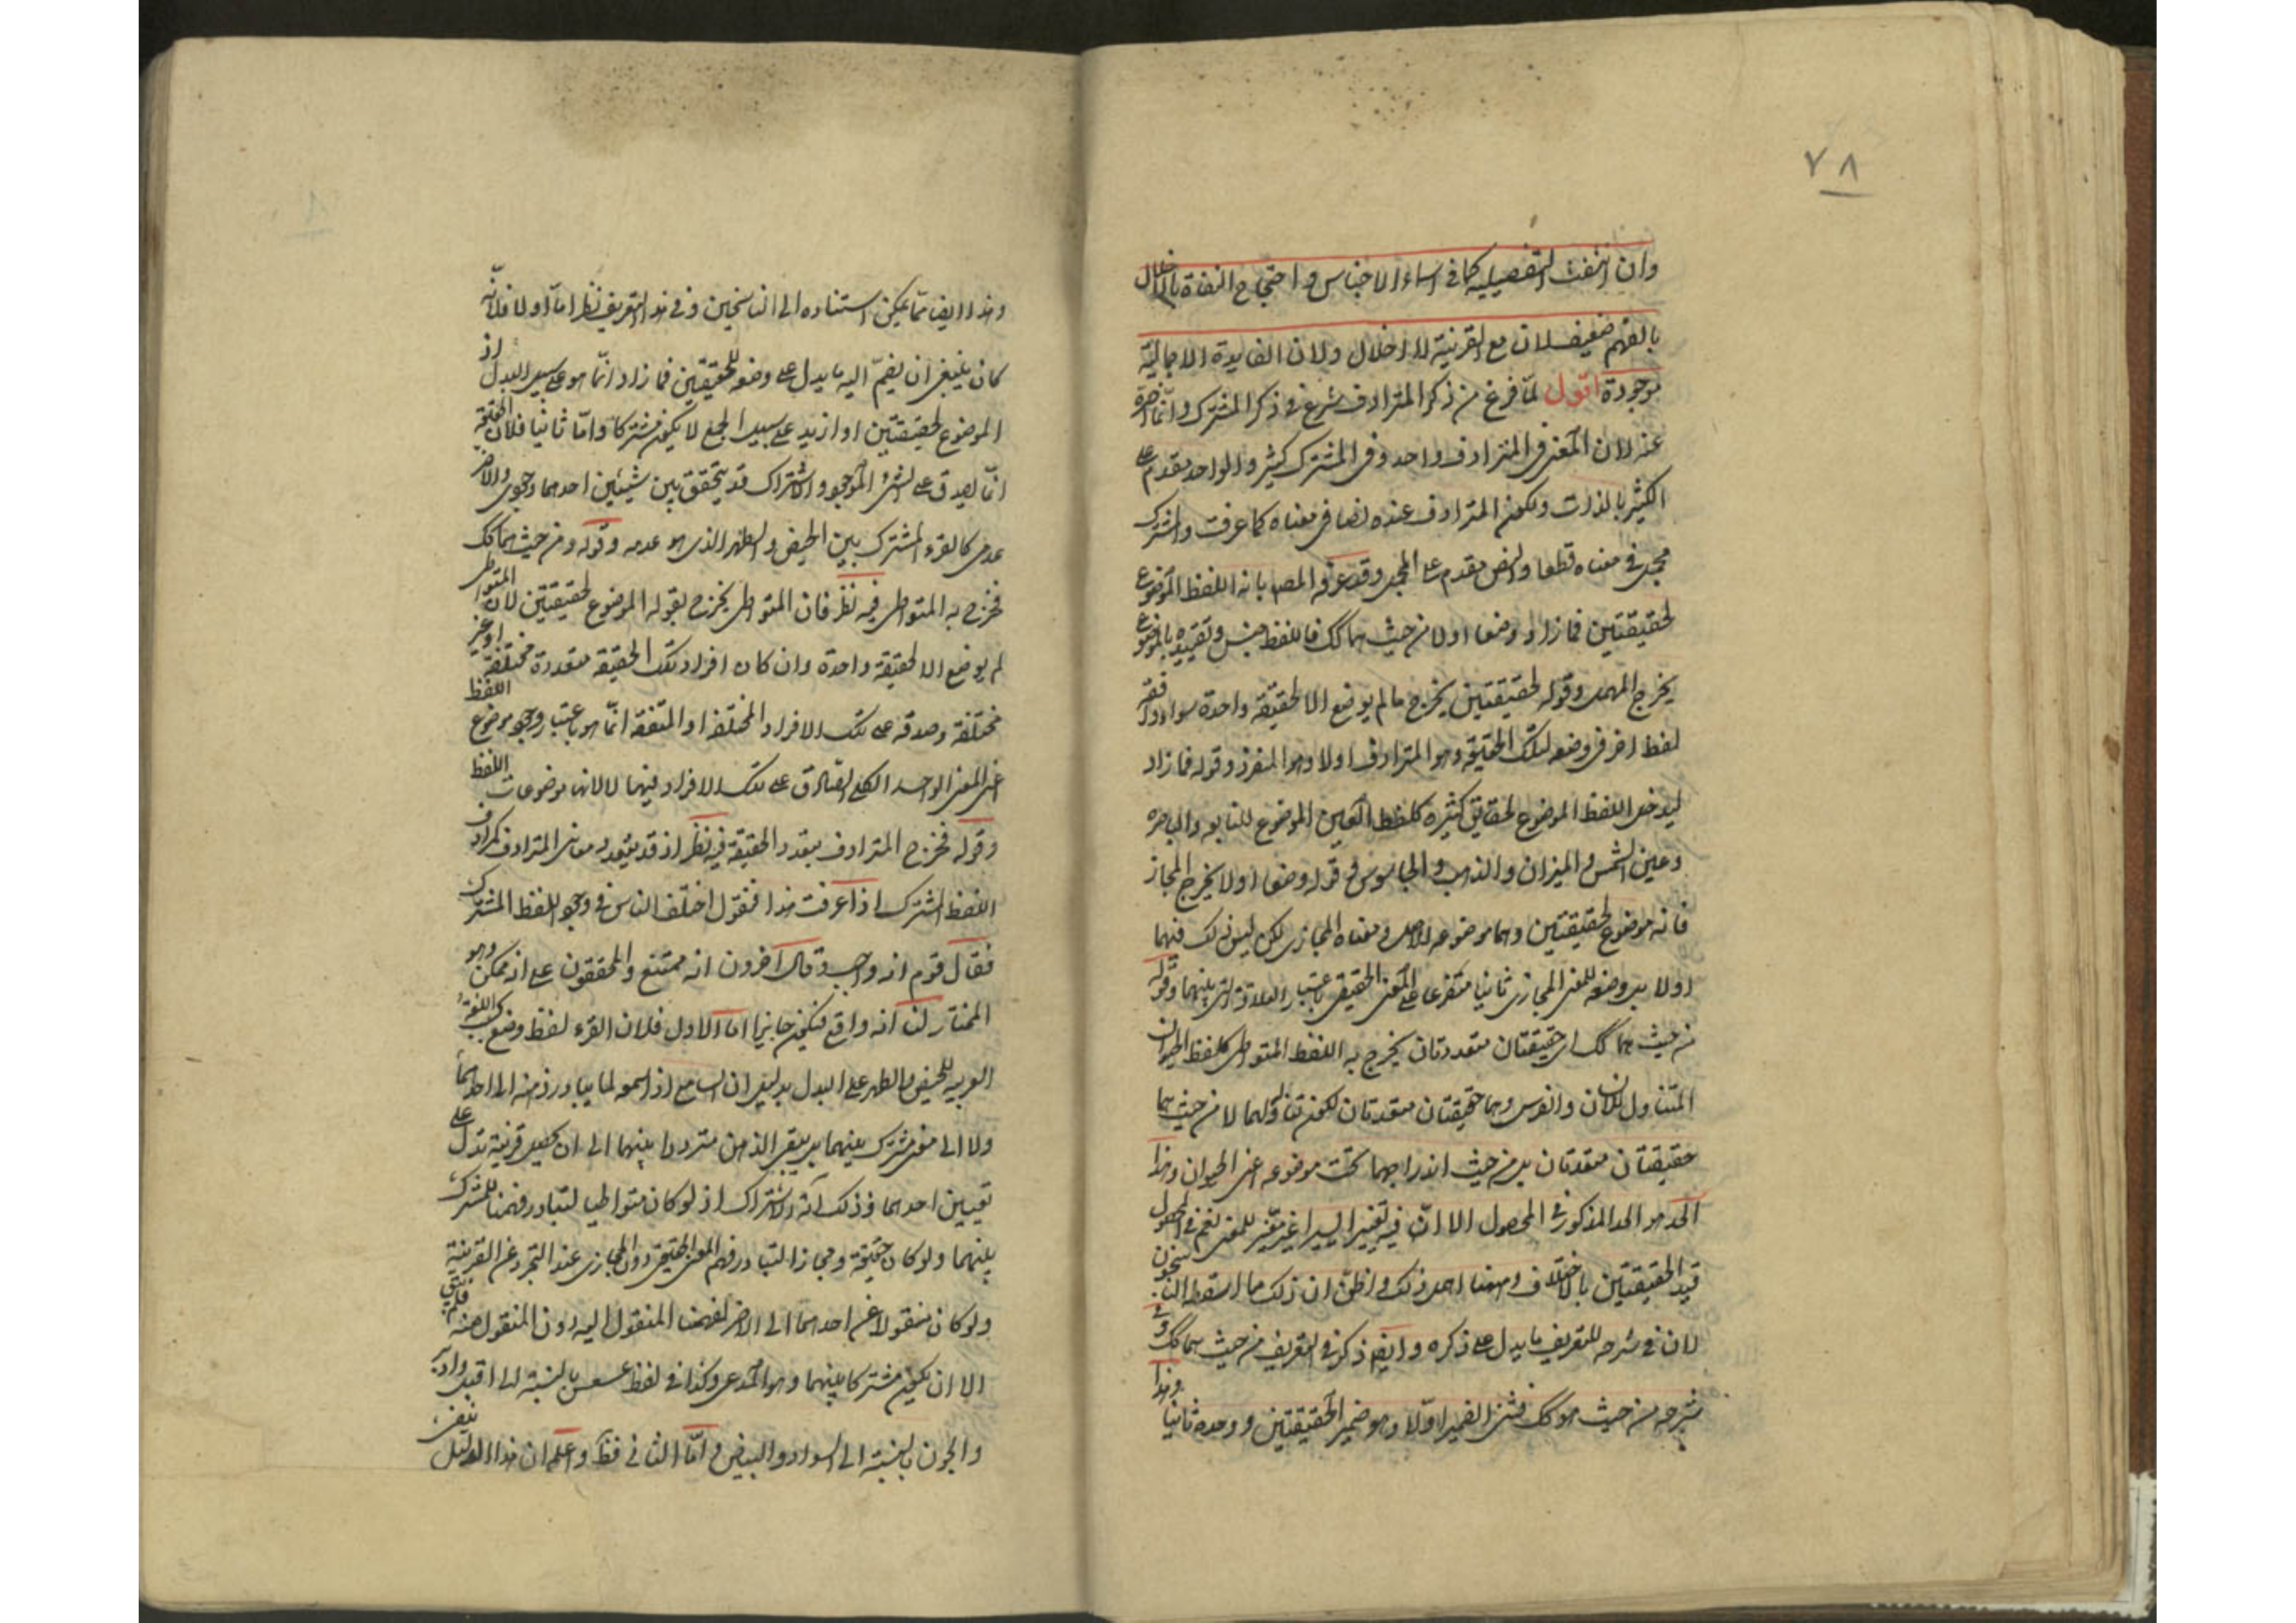 ٧٨
وان انتفت التفصيليه كما فى اسماء الاجناس واحتجاج النفاة بالاخلال
بالفهم ضعيف لان مع القرينة لا اخلال ولان الفايدة الاجمالية
موجودة اقول لمّا فرغ من ذكر المترادف شرع فى ذكر المشترك وانّما اخّره
عنه لان المعنى فى المترادف واحد وفى المشترك كثير والواحد مقدم على
الكثير بالذات ولكون المترادف عنده نصا فى معناه كما عرفت والمشترك
مجمل فى معناه قطعا والنص مقدم على المجمل وقد عرفه المص بانه اللفظ الموضوع
لحقيقتين فما زاد وضعا اولا من حيث هما كك فاللفظ جنس وتقييده بالموضوع
يخرج المهمل وقوله لحقيقتين يخرج ما لم يوضع الا لحقيقة واحدة سواء وافقه
لفظ اخر فى وضعه لتلك الحقيقه وهو المترادف اولا وهو المنفرد وقوله فما زاد
ليدخل اللفظ الموضوع لحقايق كثيره كلفظ العين الموضوع للنابعه والباصره
وعين الشمس والميزان والذهب والجاسوس وقوله وضعا اولا يخرج المجاز
فانه موضوع لحقيقتين وهما موضوعه الاصلى ومعناه المجازى لكن ليس ذلك فيهما
اولا بل وضعه للمعنى المجازى ثانيا متفرعا على المعنى الحقيقى باعتبار العلاقة التى بينهما وقوله
من حيث هما كك اى حقيقتان متعددتان يخرج به اللفظ المتواطى كلفظ الحيوان
المتناول للانسان والفرس وهما حقيقتان متعددتان لكن تناوله لهما لا من حيث هما
حقيقتان متعددتان بل من حيث اندراجهما تحت موضوعه اعنى الحيوان وهذا
الحد هو الحد المذكور فى المحصول الا انّ فيه تغييرا يسيرا غير مغيّر للمعنى نعم فى المحصول
قيد الحقيقتين بالاختلاف وههنا اهمل ذلك واظنّ ان ذلك مما اسقطه الناسخون
لان فى شرحه للتعريف ما يدل على ذكره وايضا ذكر فى التعريف من حيث هما كك وفى
شرحه من حيث هو كك فثنى الضمير اوّلا وهو ضمير الحقيقتين ووحده ثانيا وهذا
وهذا ايضا ممّا يمكن استناده الى الناسخين وفى هذا التعريف نظر امّا اولا فلانّه
كان ينبغى ان يضمّ اليه ما يدل على وضعه للحقيقتين فما زاد انّما هو على سبيل البدل اذ
الموضوع لحقيقتين او ازيد على سبيل الجمع لا يكون مشتركا وامّا ثانيا فلان الحقيقة
انّما يصدق على الشىء الموجود والاشتراك قد يتحقق بين شيئين احدهما وجودى والاخر
عدمى كالقرء المشترك بين الحيض والطهر الذى هو عدمه وقوله ومن حيث هما كك
فخرج به المتواطى فيه نظر فان المتواطى يخرج بقوله الموضوع لحقيقتين لان المتواطى
لم يوضع الا لحقيقة واحدة وان كان افراد تلك الحقيقه متعددة مختلفة او غير
مختلفة وصدقه على تلك الافراد المختلفه او المتفقه انّما هو باعتبار وجود موضوع اللفظ
اعنى المعنى الواحد الكلى الصادق على تلك الافراد فيهما لا لانها موضوعات اللفظ
وقوله فخرج المترادف بتعدد الحقيقة فيه نظر اذ قد يتعدد معانى المترادف كمرادف
اللفظ المشترك اذا عرفت هذا فنقول اختلف الناس فى وجود اللفظ المشترك
فقال قوم انه واجب وقال اخرون انه ممتنع والمحققون على انه ممكن وهو
المختار لنا انه واقع فيكون جايزا اما الاول فلان القرء لفظ وضع بحسب اللغة
العربيه للحيض والطهر على البدل بدليل ان السامع اذا سمعه لم يبادر ذهنه الى احدهما
ولا الى معنى مشترك بينهما بل يبقى الذهن مترددا بينهما الى ان يحصل قرينة تدل على
تعيين احدهما وذلك آية الاشتراك اذ لو كان متواطيا لتبادر فهمنا للمشترك
بينهما ولو كان حقيقة ومجازا لتبادر فهم المعنى الحقيقى دون المجازى عند التجرد عن القرينة
ولو كان منقولا عن احدهما الى الاخر لفهمنا المنقول اليه دون المنقول منه فلم يبق
الا ان يكون مشتركا بينهما وهو المدعى وكذا فى لفظ عسعس بالنسبة الى اقبل وادبر
والجون بالنسبة الى السواد والبياض وامّا الثانى فظ واعلم ان هذا الدليل ينفى